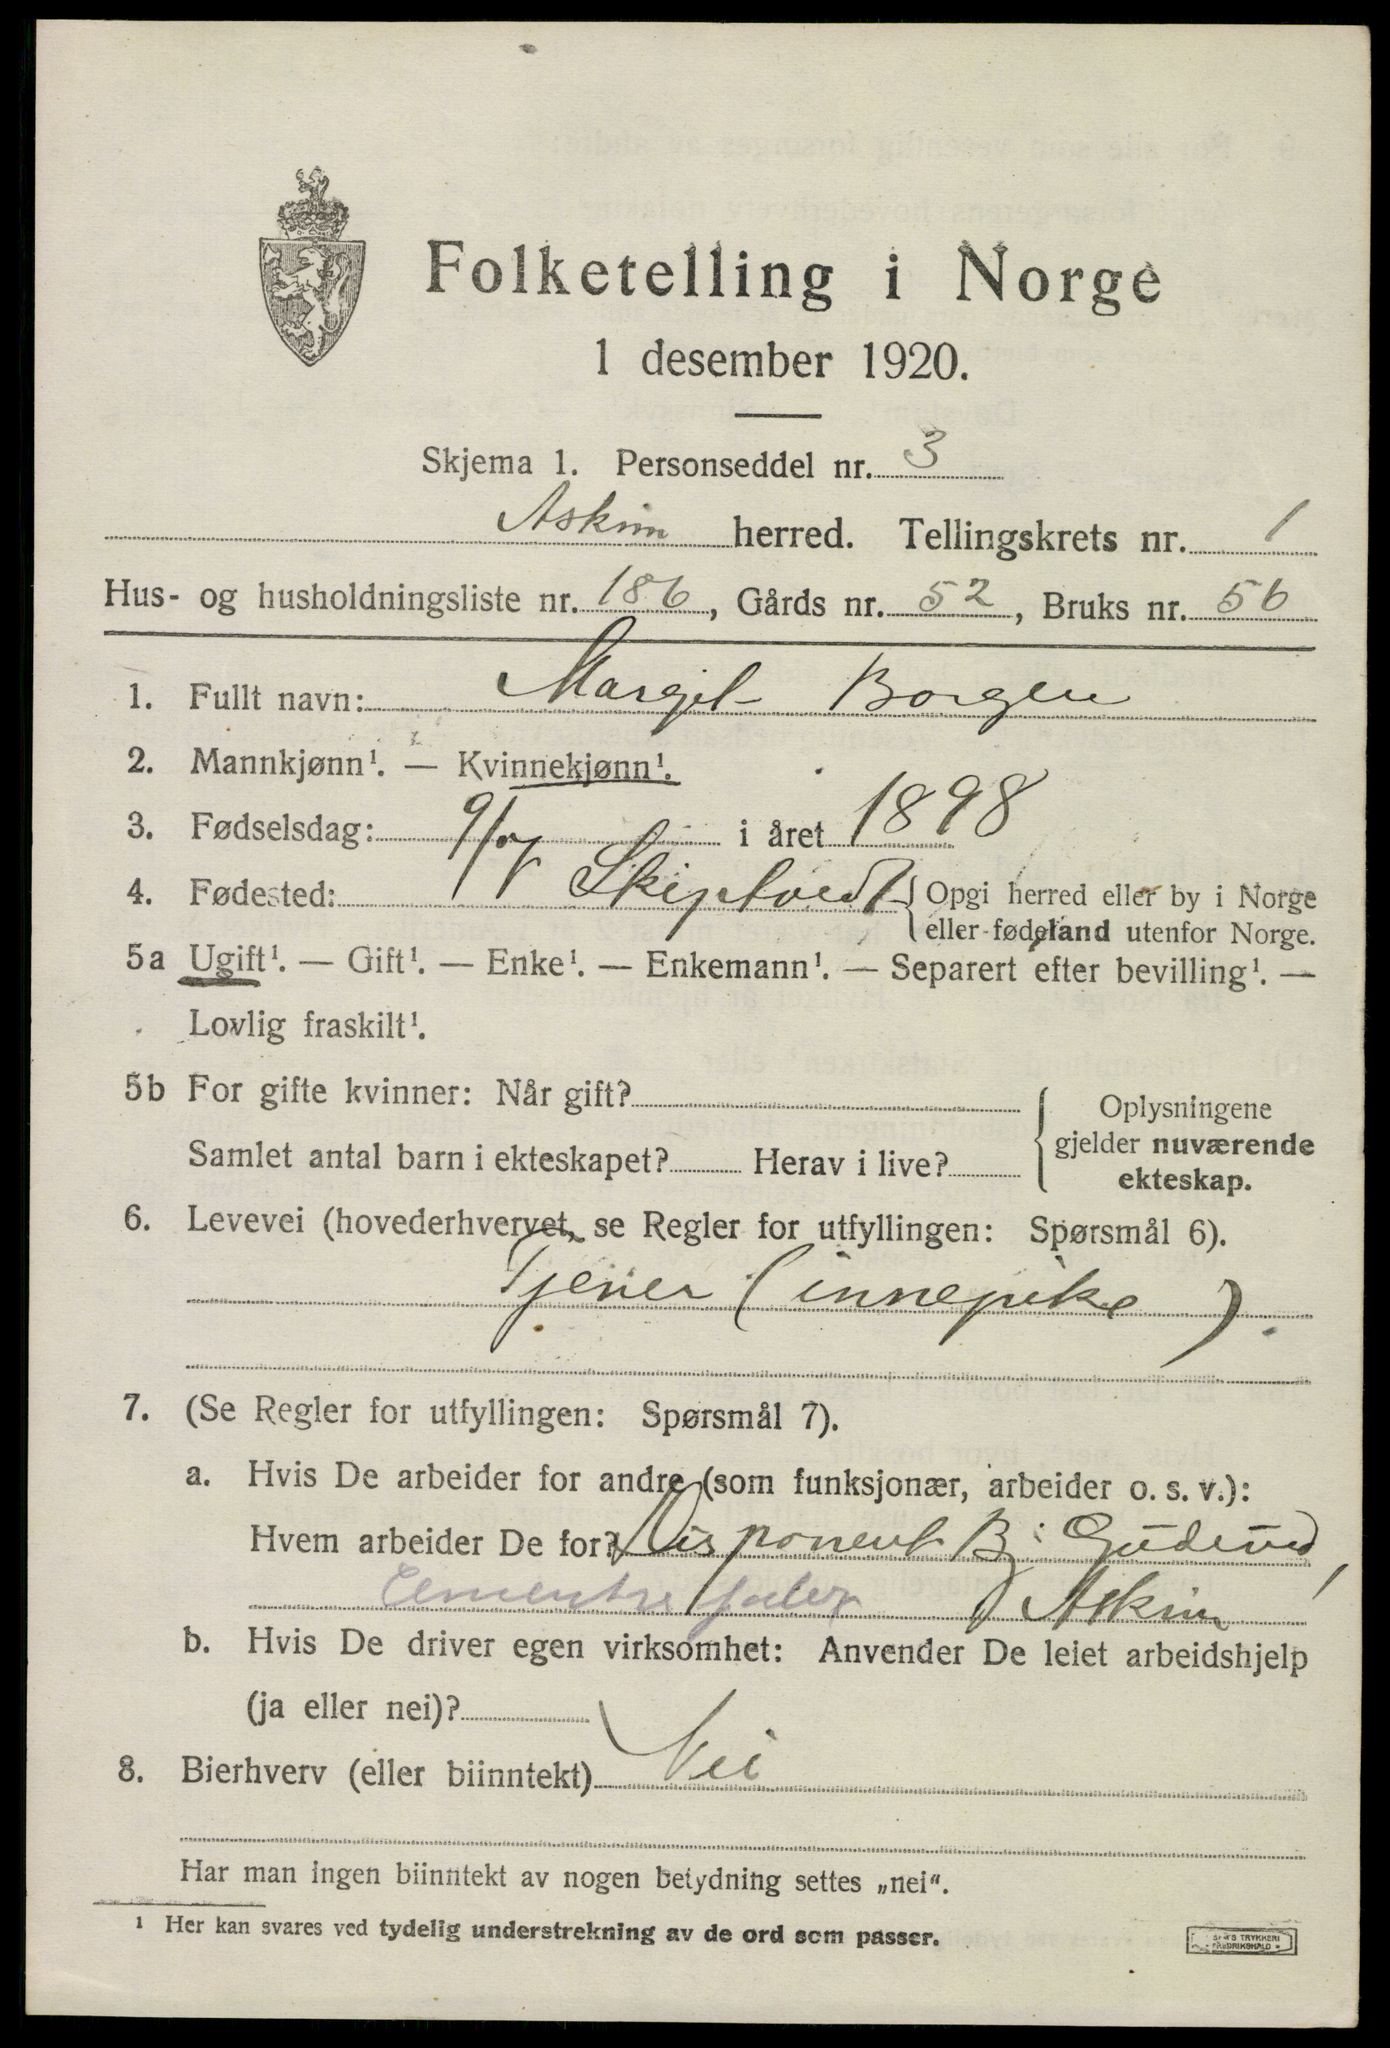 Folketelling i Norge
1 desember 1920.
Skjema 1. Personseddel nr. 3
Askim herred. Tellingskrets nr. 1
Hus- og husholdningsliste nr. 186, Gårds nr. 52, Bruks nr. 56
1. Fullt navn: Margit Borgen
2. Mannkjønn¹. — Kvinnekjønn¹.
3. Fødselsdag: 9/7 i året 1898
4. Fødested: Skiptvedt { Opgi herred eller by i Norge
eller fødeland utenfor Norge.
5a Ugift¹. — Gift¹. — Enke¹. — Enkemann¹. — Separert efter bevilling¹. —
Lovlig fraskilt¹.
5b For gifte kvinner: Når gift?
Samlet antal barn i ekteskapet? Herav i live?
{ Oplysningene
gjelder nuværende
ekteskap.
6. Levevei (hovederhvervet, se Regler for utfyllingen: Spørsmål 6).
Tjener (innepike)
7. (Se Regler for utfyllingen: Spørsmål 7).
a. Hvis De arbeider for andre (som funksjonær, arbeider o. s. v.):
Hvem arbeider De for? Disponent Bj.
Askim
b. Hvis De driver egen virksomhet: Anvender De leiet arbeidshjelp
(ja eller nei)?
8. Bierhverv (eller biinntekt) Nei
Har man ingen biinntekt av nogen betydning settes „nei".
¹ Her kan svares ved tydelig understrekning av de ord som passer.
TRYKKERI
FREDRIKSHALD